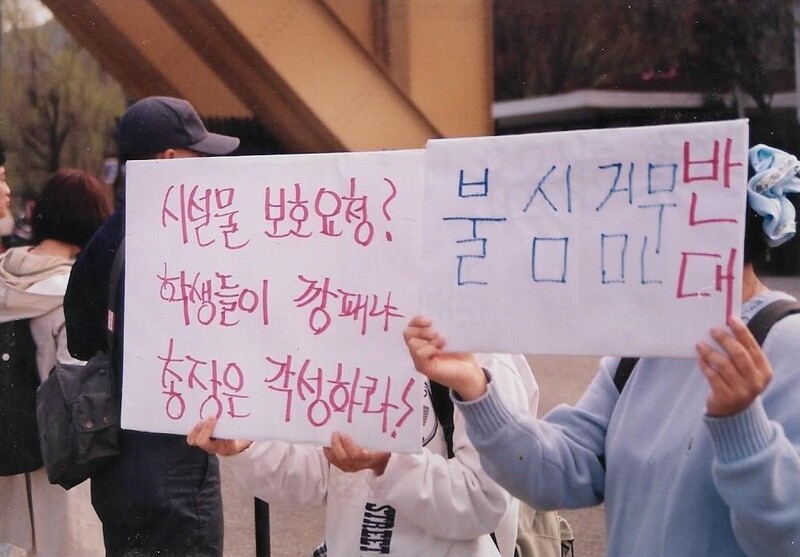 시설물 보호요청?
학생들이 깡패냐
총장은 각성하라!
불심검문 반대
STREET